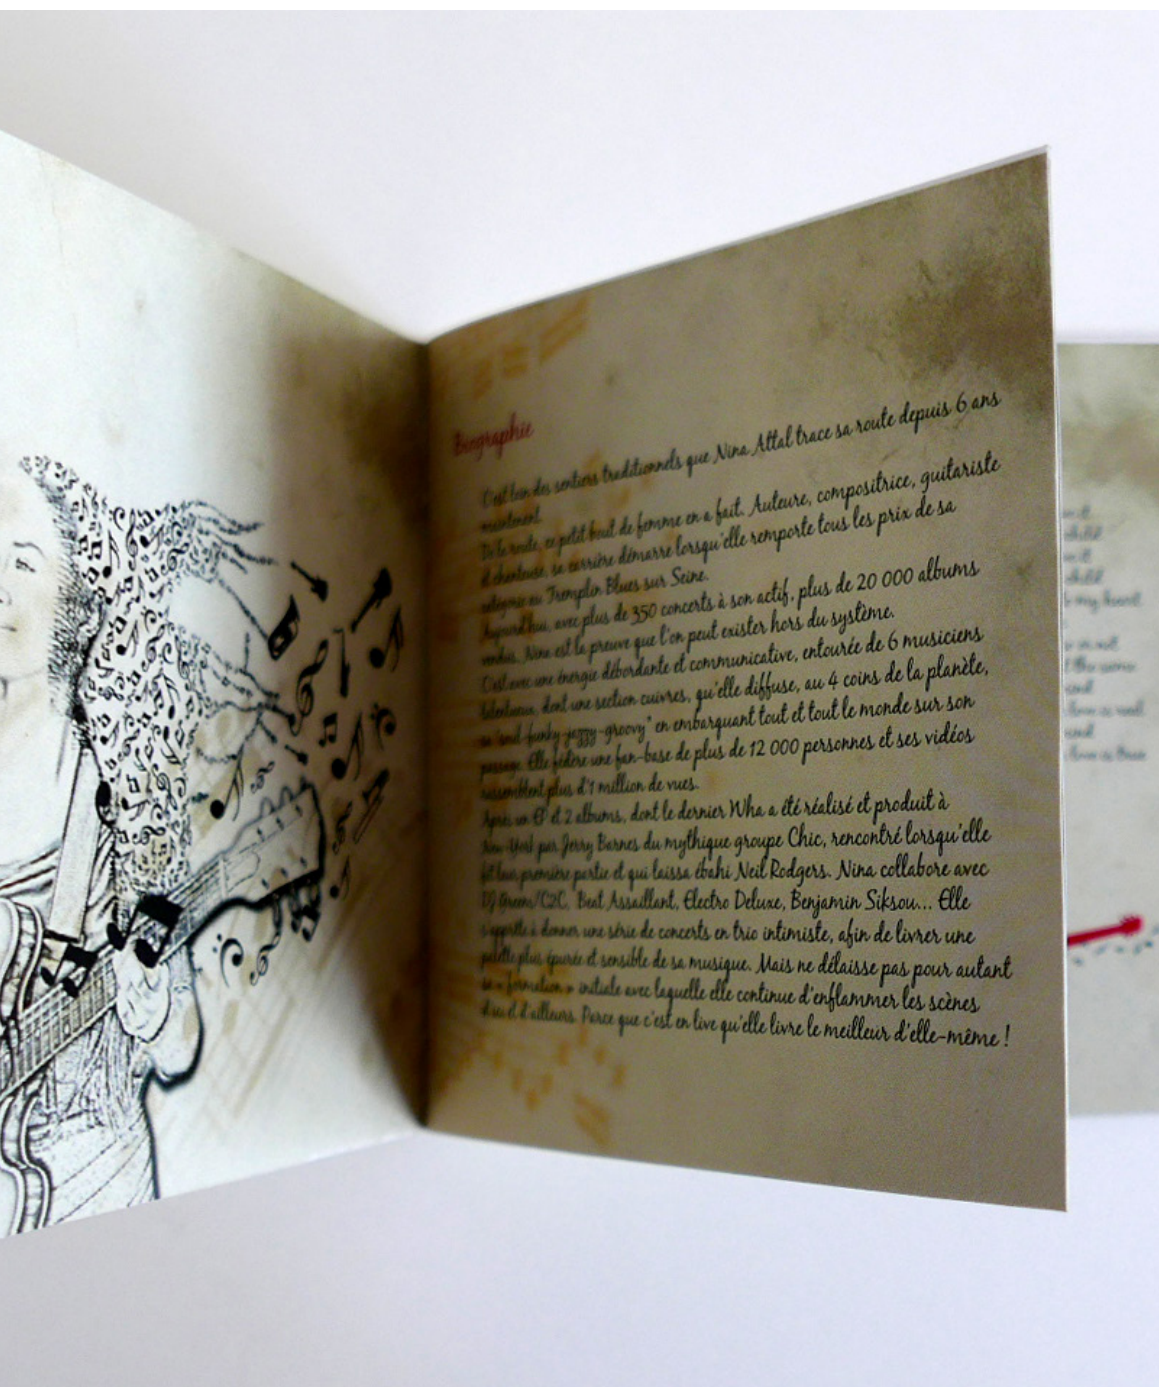 Biographie
C'est loin des sentiers traditionnels que Nina Attal trace sa route depuis 6 ans
maintenant.
De la route, ce petit bout de femme en a fait. Auteure, compositrice, guitariste
et chanteuse, sa carrière démarre lorsqu'elle remporte tous les prix de sa
catégorie au Tremplin Blues sur Seine.
Aujourd'hui, avec plus de 350 concerts à son actif, plus de 20 000 albums
vendus, Nina est la preuve que l'on peut exister hors du système.
C'est avec une énergie débordante et communicative, entourée de 6 musiciens
talentueux, dont une section cuivres, qu'elle diffuse, au 4 coins de la planète,
sa "soul-funky-jazzy-groovy" en embarquant tout et tout le monde sur son
passage. Elle fédère une fan-base de plus de 12 000 personnes et ses vidéos
rassemblent plus d'1 million de vues.
Après un EP et 2 albums, dont le dernier Wha a été réalisé et produit à
New-York par Jerry Barnes du mythique groupe Chic, rencontré lorsqu'elle
fit leur première partie et qui laissa ébahi Neil Rodgers. Nina collabore avec
DJ Greem/C2C, Beat Assaillant, Electro Deluxe, Benjamin Siksou... Elle
s'apprête à donner une série de concerts en trio intimiste, afin de livrer une
palette plus épurée et sensible de sa musique. Mais ne délaisse pas pour autant
sa « formation » initiale avec laquelle elle continue d'enflammer les scènes
d'ici et d'ailleurs. Parce que c'est en live qu'elle livre le meilleur d'elle-même !
my heart